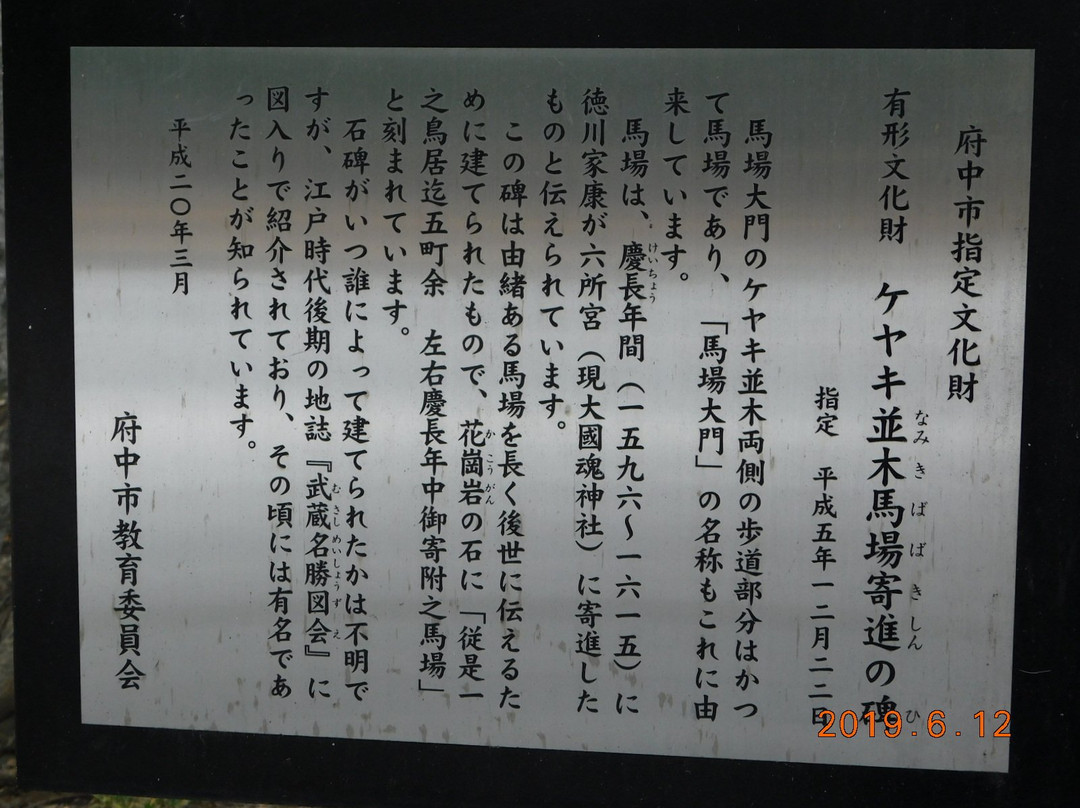 府中市指定文化財
有形文化財　ケヤキ並木馬場寄進の碑
なみきばばきしん　ひ
指定　平成五年一二月二二日
馬場大門のケヤキ並木両側の歩道部分はかつ
て馬場であり、「馬場大門」の名称もこれに由
来しています。
馬場は、慶長年間（一五九六〜一六一五）に
けいちょう
徳川家康が六所宮（現大國魂神社）に寄進した
ものと伝えられています。
この碑は由緒ある馬場を長く後世に伝えるた
めに建てられたもので、花崗岩の石に「従是一
かこうがん
之鳥居迄五町余　左右慶長年中御寄附之馬場」
と刻まれています。
石碑がいつ誰によって建てられたかは不明で
すが、江戸時代後期の地誌『武蔵名勝図会』に
むさしめいしょうずえ
図入りで紹介されており、その頃には有名であ
ったことが知られています。
平成二〇年三月
府中市教育委員会
2019.6.12